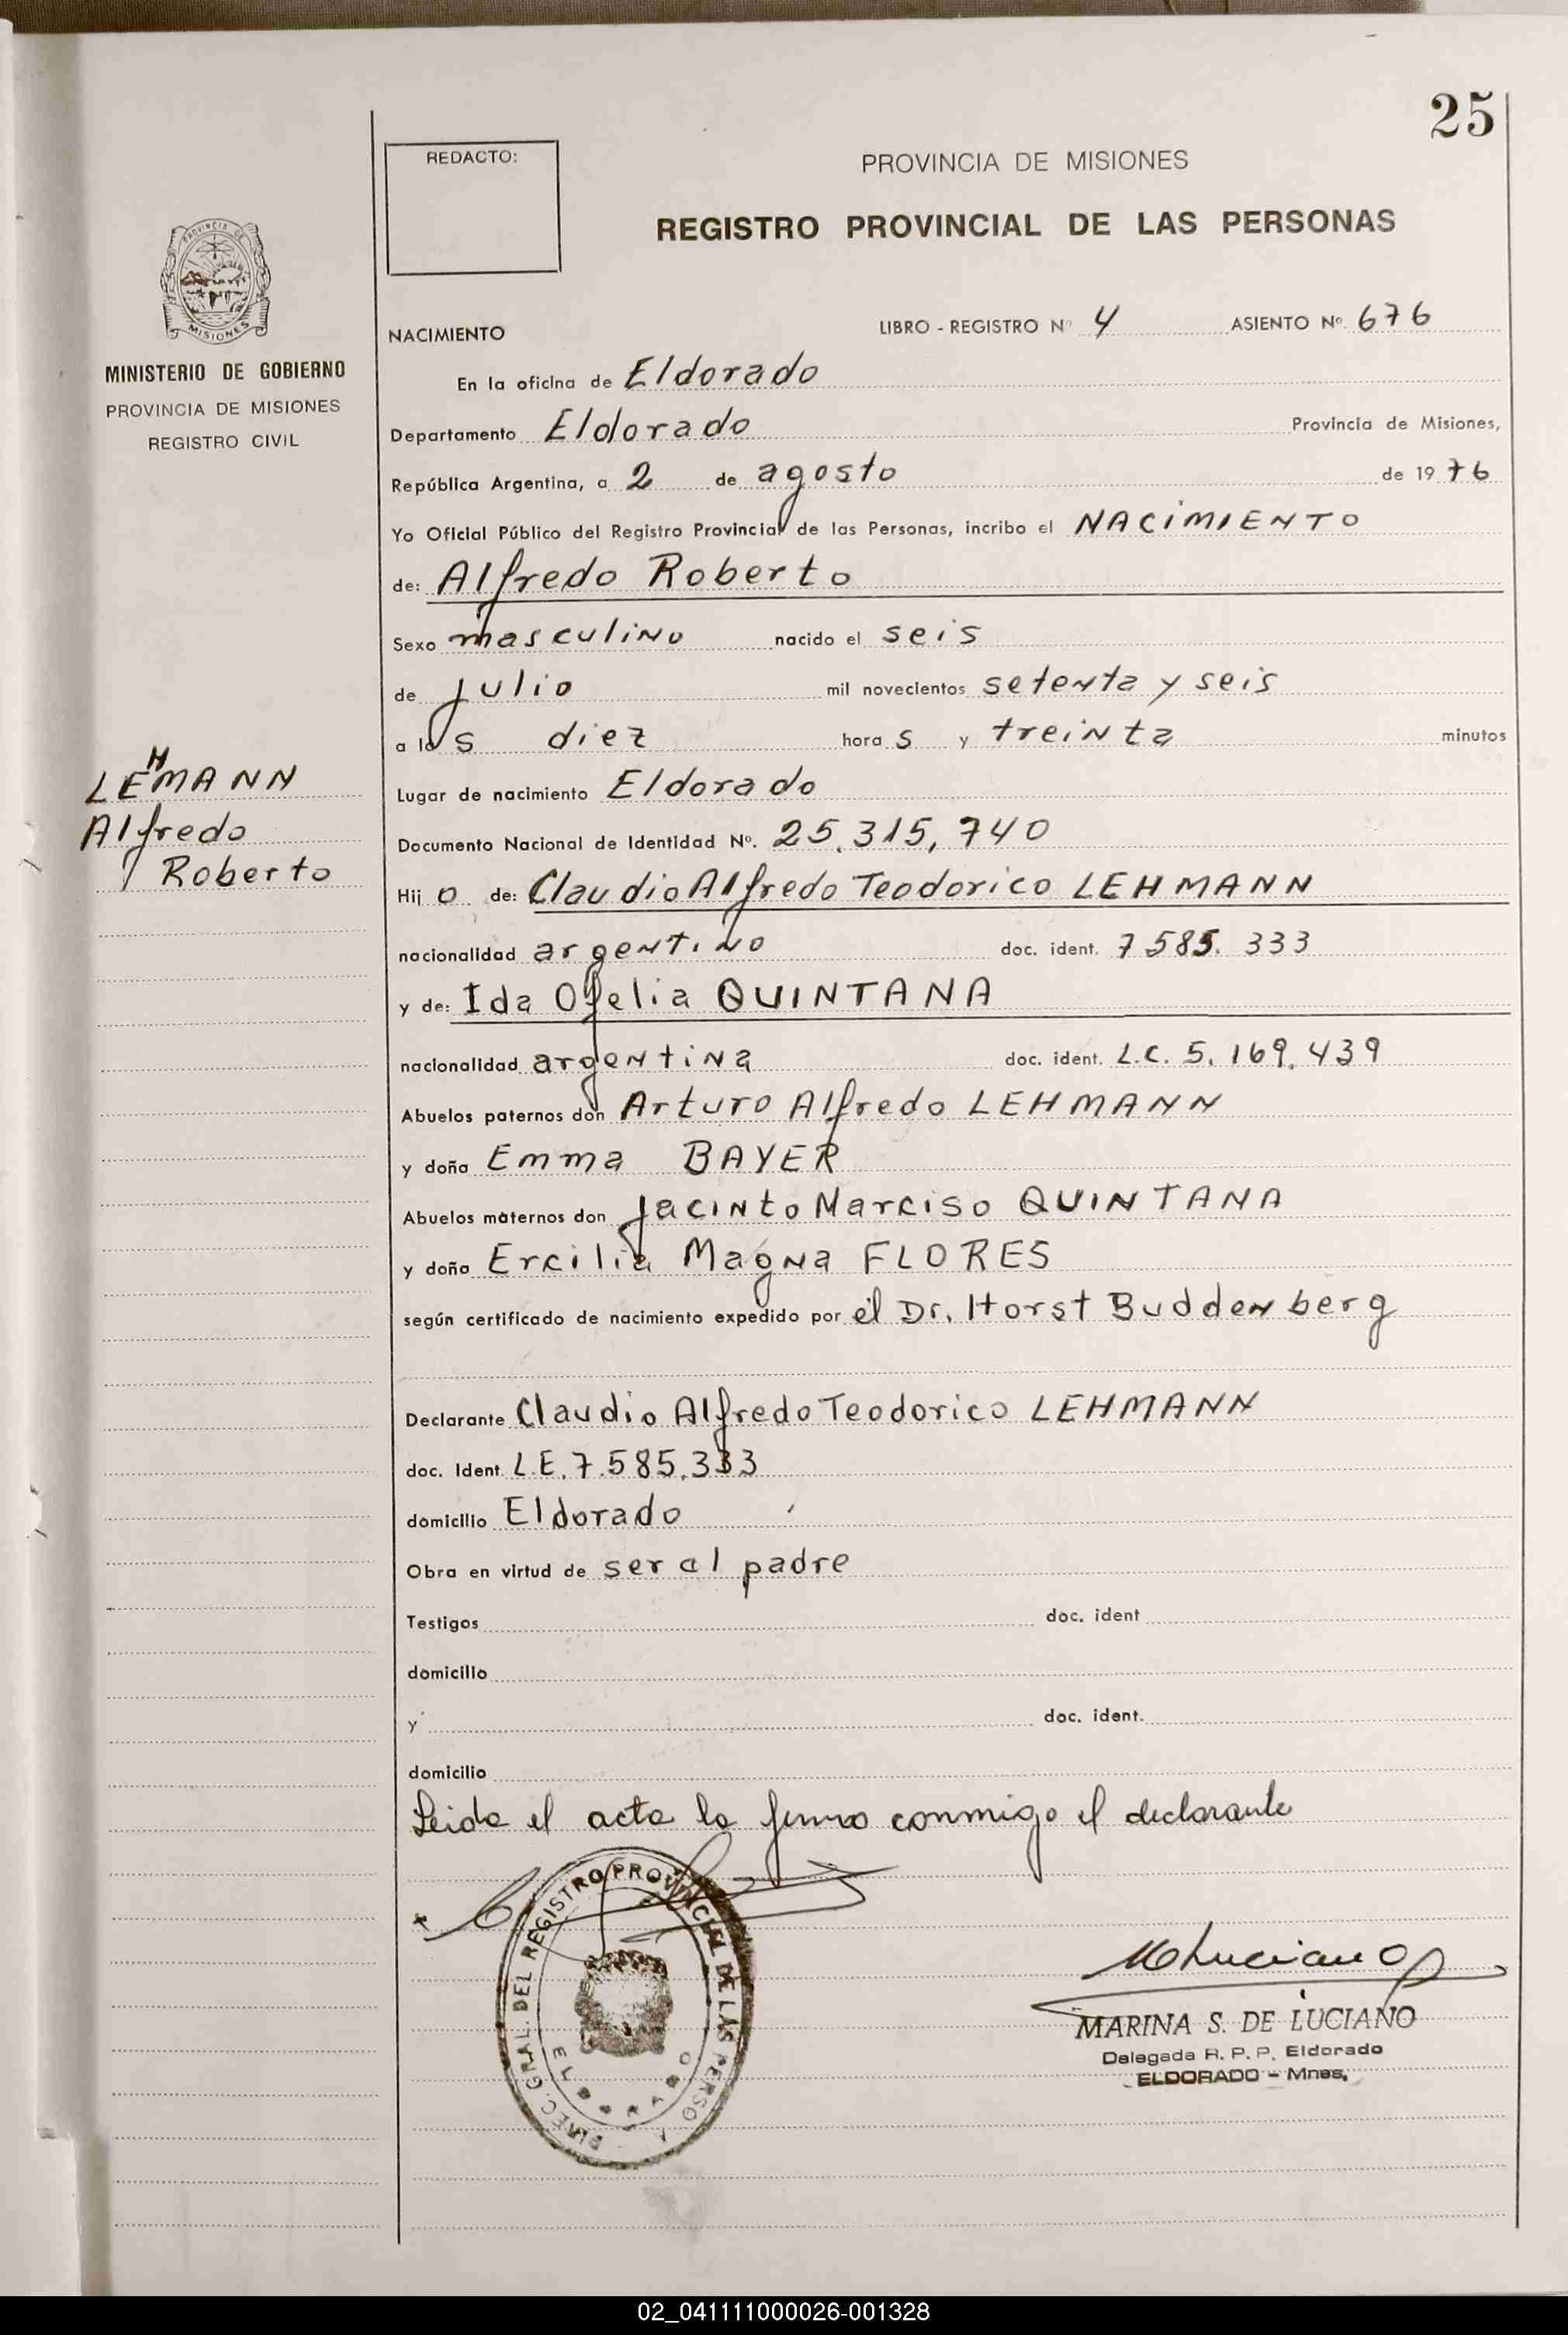 25
REDACTO:
PROVINCIA DE MISIONES
REGISTRO PROVINCIAL DE LAS PERSONAS
PROVINCIA DE
MISIONES
MINISTERIO DE GOBIERNO
PROVINCIA DE MISIONES
REGISTRO CIVIL
NACIMIENTO LIBRO - REGISTRO Nº 4 ASIENTO Nº 676
En la oficina de Eldorado
Departamento Eldorado Provincia de Misiones,
República Argentina, a 2 de agosto de 1976
Yo Oficial Público del Registro Provincial de las Personas, incribo el NACIMIENTO
de: Alfredo Roberto
Sexo masculino nacido el seis
de julio mil novecientos setenta y seis
a las diez horas y treinta minutos
LEHMANN
Alfredo
Roberto
Lugar de nacimiento Eldorado
Documento Nacional de Identidad Nº. 25.315,740
Hijo de: Claudio Alfredo Teodorico LEHMANN
nacionalidad argentino doc. ident. 7585.333
y de: Ida Ofelia QUINTANA
nacionalidad argentina doc. ident. L.C. 5.169.439
Abuelos paternos don Arturo Alfredo LEHMANN
y doña Emma BAYER
Abuelos maternos don Jacinto Marciso QUINTANA
y doña Ercilia Magna FLORES
según certificado de nacimiento expedido por el Dr. Horst Buddenberg
Declarante Claudio Alfredo Teodorico LEHMANN
doc. Ident. L.E.7.585.333
domicilio Eldorado
Obra en virtud de ser el padre
Testigos doc. ident
domicilio
y doc. ident.
domicilio
Leida el acta la firma conmigo el declarante
DIREC. GRAL. DEL REGISTRO PROVINCIAL DE LAS PERSO
ELDORADO
MLuciano
MARINA S. DE LUCIANO
Delegada R. P. P. Eldorado
ELDORADO - Mnes.
02_041111000026-001328